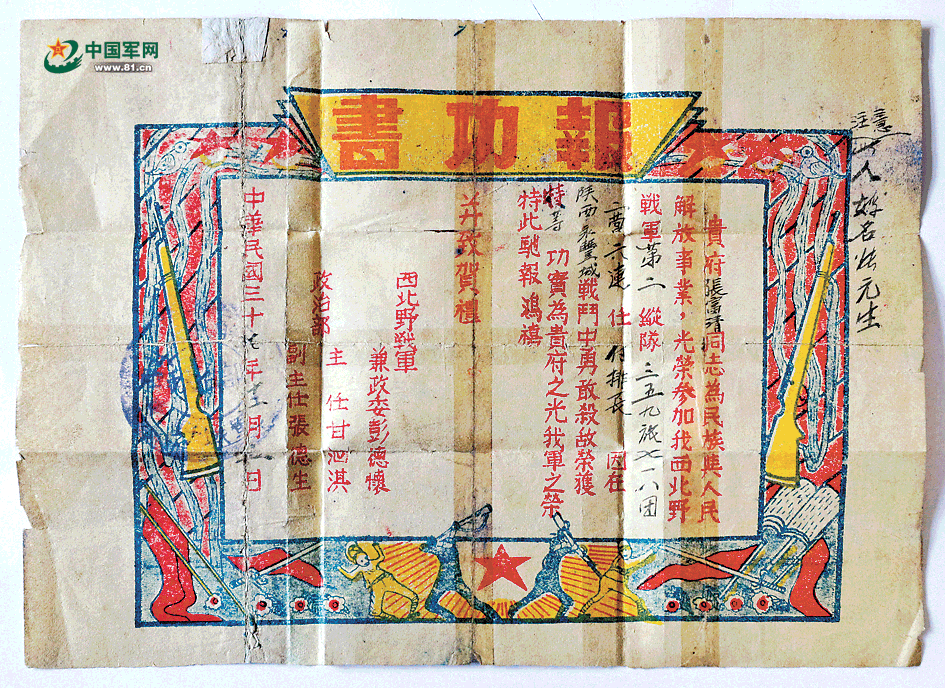 中国军网
www.81.cn
報功書
注意
人好名张元生
貴府張富清同志為民族與人民
解放事業，光榮参加我西北野
戦軍第二縱隊三五九旅七一八团
六連任付排長因在
陝西永豐城戦鬥中勇敢殺敌荣獲
特等功實為貴府之光我軍之榮
特此馳報鴻禧
并致賀禮
西北野戦軍
兼政委彭德懷
政治部主任甘泗淇
副主任張德生
中華民國三十七年十二月日